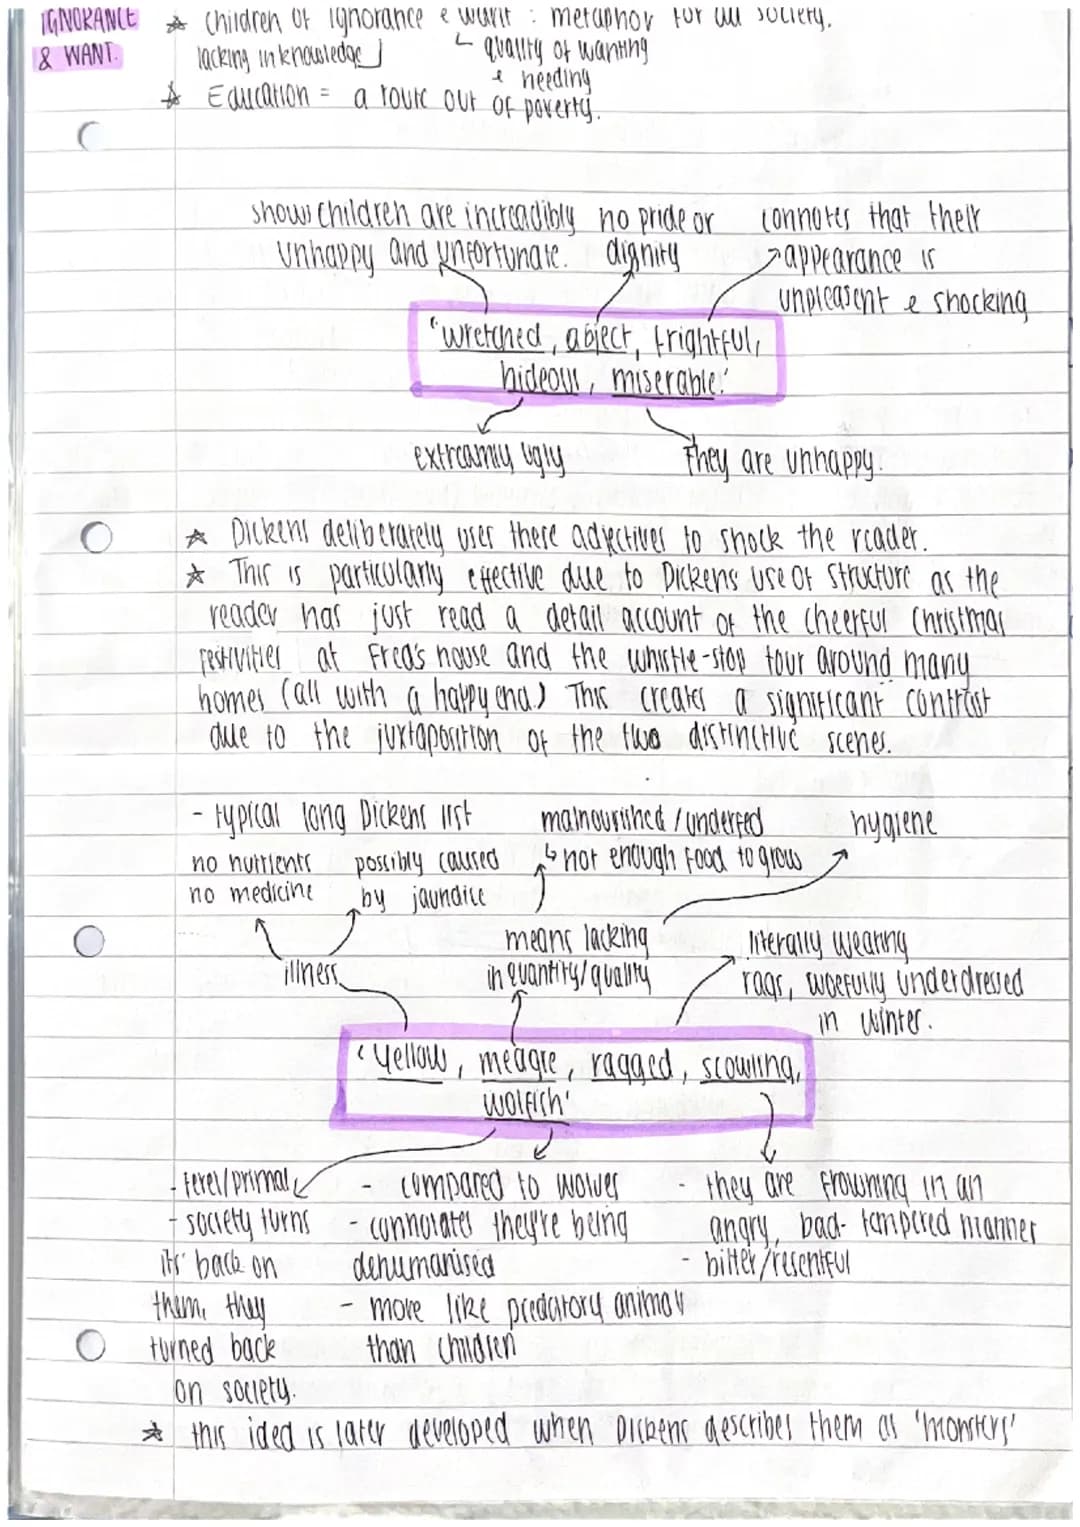 IGNORANCE
& WANT.
☆ children of ignorance & want : metaphor for all society.
lacking in knowledge
↳ quality of wanting
& needing
☆ Education = a route out of poverty.
shows children are increadibly
unhappy and unfortunate.
no pride or
dignity
connotes that their
appearance is
unpleasent & shocking
"wretched, abject, frightful,
hideous, miserable."
extreamly ugly
They are unhappy.
☆ Dickens deliberately uses these adjectives to shock the reader.
☆ This is particularly effective due to Dickens use of structure as the
reader has just read a detail account of the cheerful Christmas
festivities at Fred's house and the whistle-stop tour around many
homes (all with a happy end.) This creates a significant contrast
due to the juxtaposition of the two distinctive scenes.
- typical long Dickens list
no nutrients
no medicine
possibly caused
by jaundice
malnourished / underfed
↳ not enough food to grow
hygiene
illness
means lacking
in quantity/quality
literally wearing
rags, woefully underdressed
in winter.
'Yellow, meagre, ragged, scowling,
wolfish'
- ferel/primal
- society turns
its' back on
them, they
turned back
on society.
- compared to wolves
- connotates they're being
dehumanised
- more like predatory animal
than children
- they are frowning in an
angry, bad-tampered manner
- bitter/resentful
☆ this idea is later developed when Dickens describes them as 'monsters'